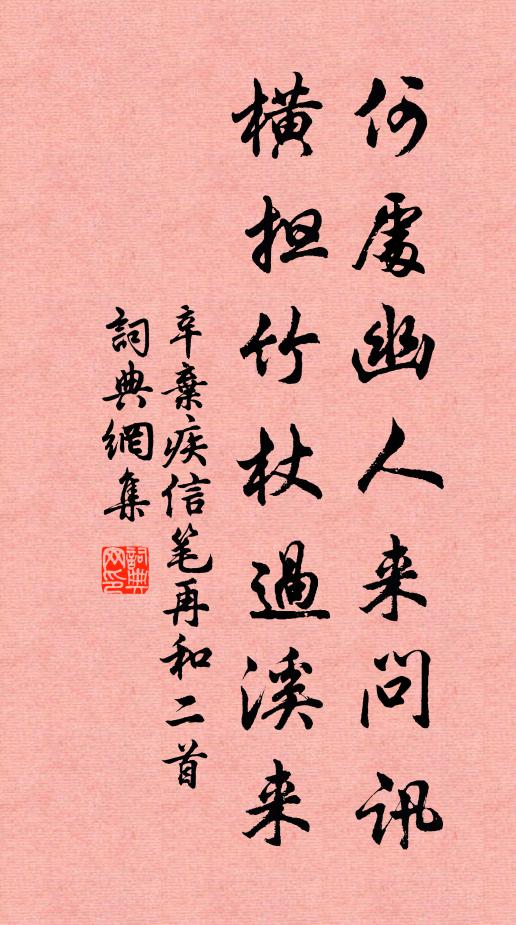 何處幽人来問訊
横担竹杖過溪来
辛棄疾信笔再和二首
詞典網集
詞典網印